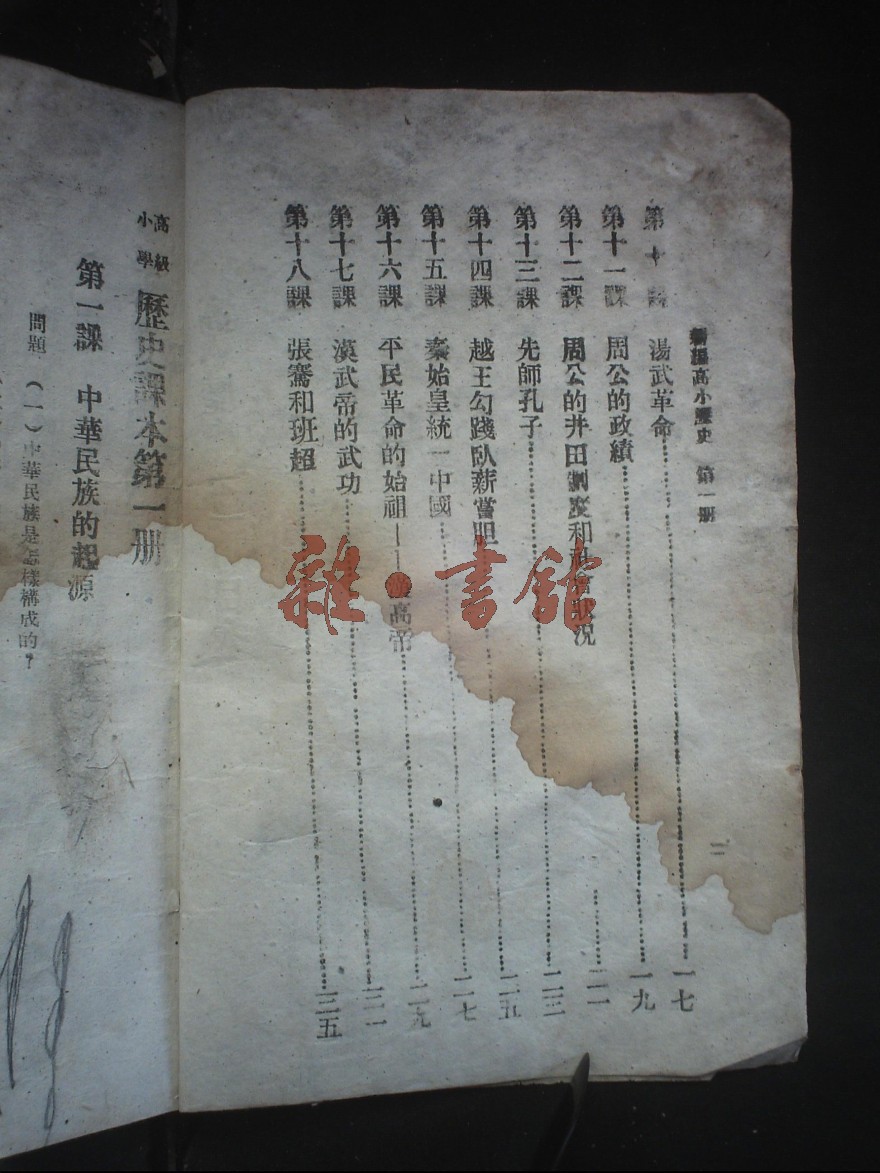 新編高小歷史 第一册
二
第十課 湯武革命 一七
第十一課 周公的政績 一九
第十二課 周公的井田制度和社會狀況 二一
第十三課 先師孔子 二三
第十四課 越王勾踐臥薪嘗胆 二五
第十五課 秦始皇統一中國 二七
第十六課 平民革命的始祖——漢高帝 二九
第十七課 漢武帝的武功
第十八課 張騫和班超 三五
高級小學 歷史課本第一册
第一課 中華民族的起源
問題 (一)中華民族是怎樣構成的?
雜·書館